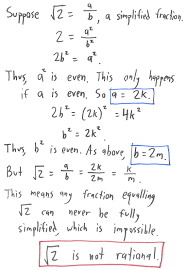 Suppose √2 = a/b, a simplified fraction.
2 = a²/b²
2b² = a².
Thus, a² is even. This only happens
if a is even. So a = 2k.
2b² = (2k)² = 4k²
b² = 2k².
Thus, b² is even. As above, b = 2m.
But √2 = a/b = 2k/2m = k/m.
This means any fraction equalling
√2 can never be fully
simplified, which is impossible.
√2 is not rational.